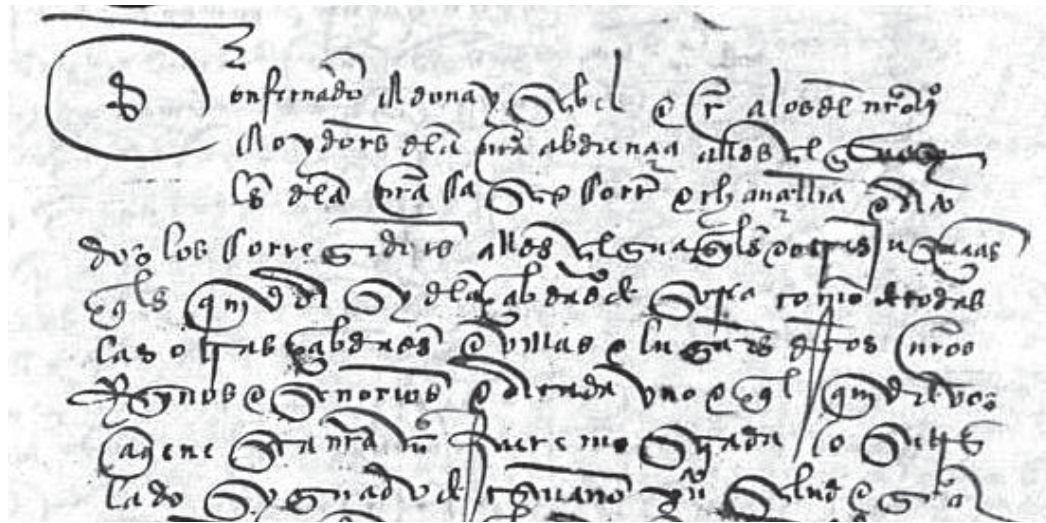 Don fernando e dona ysabel etc a los del nro qo
e oydors dela nra abdiençia alldes alguazi
ls dela nra casa e corte e chançellria e a to
dos los corregidors alldes alguazils e otras justiçias
qlsqr dela çibdad de como de todas
las otras çibdades e villas e lugars destos nros
Reynos e señorios e a cada uno e qlqr de vos
a quien esta nra carta fuere mostrada o su tras
lado sygnado de escriuano puco Salud e graçia